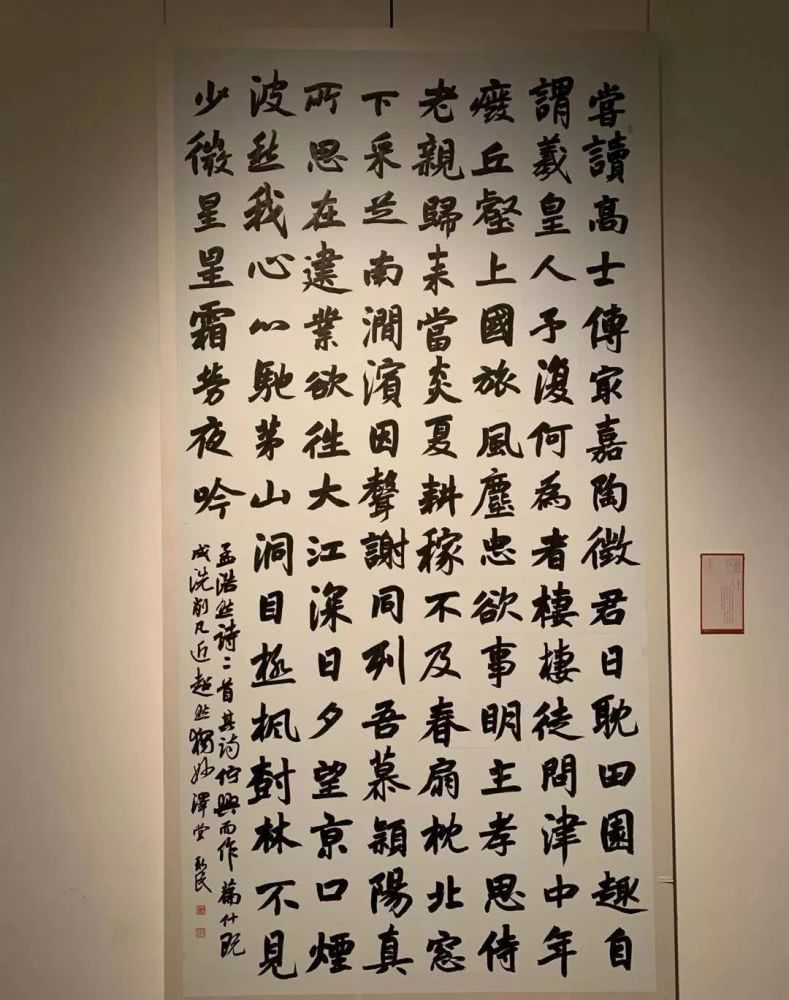 嘗讀高士傳冣嘉陶徵君日耽田園趣自
謂羲皇人予復何為者棲棲徒問津中年
廢丘壑上國旅風塵忠欲事明主孝思侍
老親歸来當炎夏耕稼不及春扇枕北窓
下采芝南澗濱因聲謝同列吾慕潁陽真
所思在建業欲往大江深日夕望京口煙
波愁我心心馳茅山洞目極楓樹林不見
少微星星霜勞夜吟
孟浩然詩二首其詩佇興而作篇什既
成洗削凡近超然獨妙 澤堂